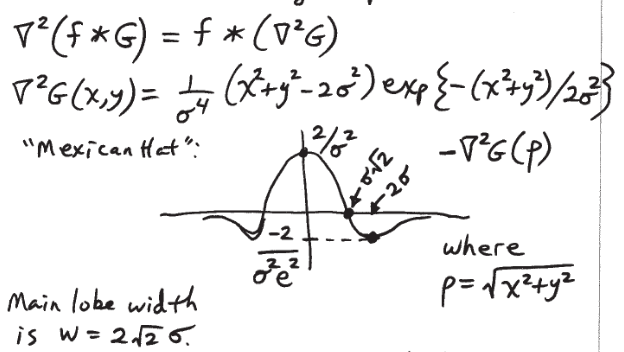 ∇²(f * G) = f * (∇²G)
∇²G(x,y) = 1/σ⁴ (x²+y²-2σ²) exp{-(x²+y²)/2σ²}
"Mexican Hat":
2/σ²
σ√2
2σ
-∇²G(ρ)
-2/σ²e²
where
ρ = √x²+y²
Main lobe width
is W = 2√2 σ.